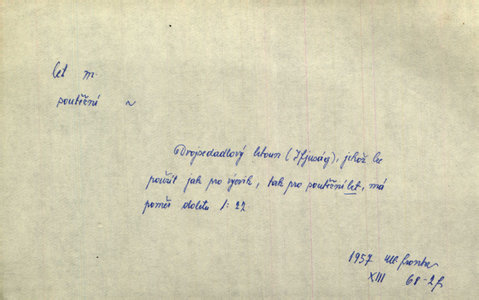 let m.
soutěžní ~
Dvojsedadlový letoun (Ifjuság), jehož lze
použít jak pro výcvik, tak pro soutěžní let, má
poměr doletu 1:27
1957 Ml. fronta
XIII 68-2